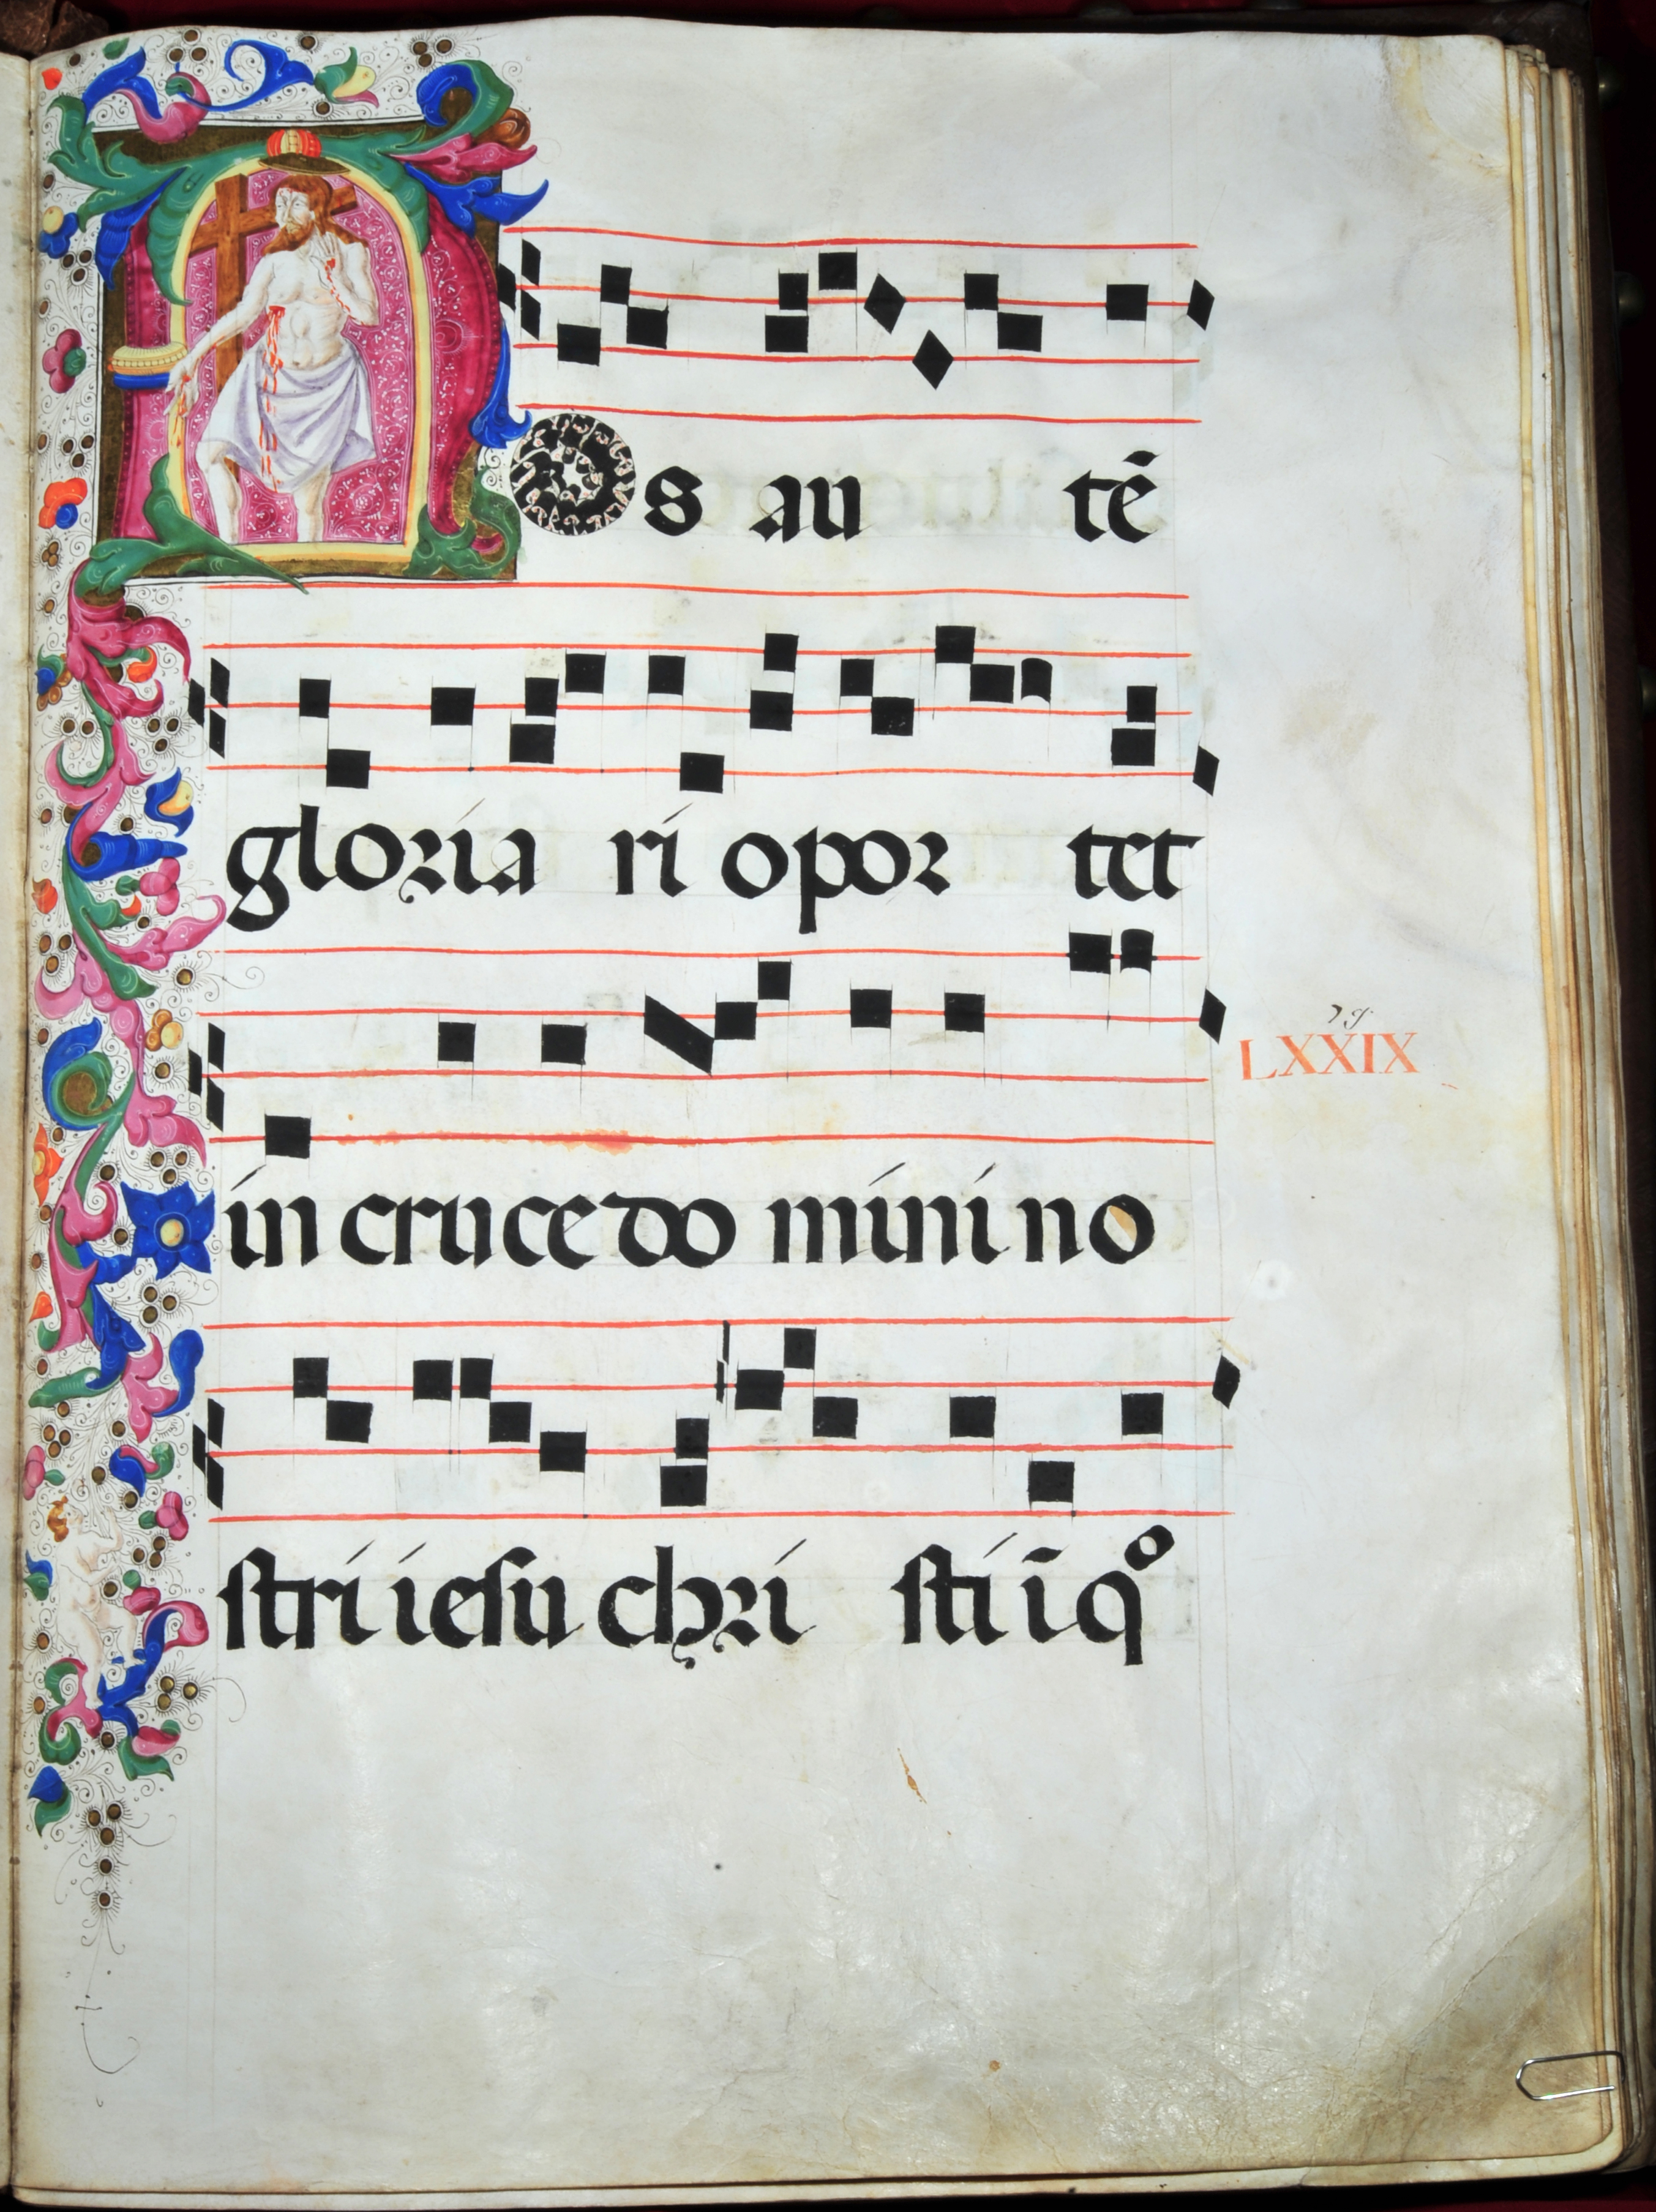 NOs au tē
gloria ri opor tet
in cruce do mini no
LXXIX
stri iesu chri sti ī qº